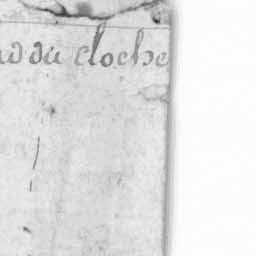 du cloche